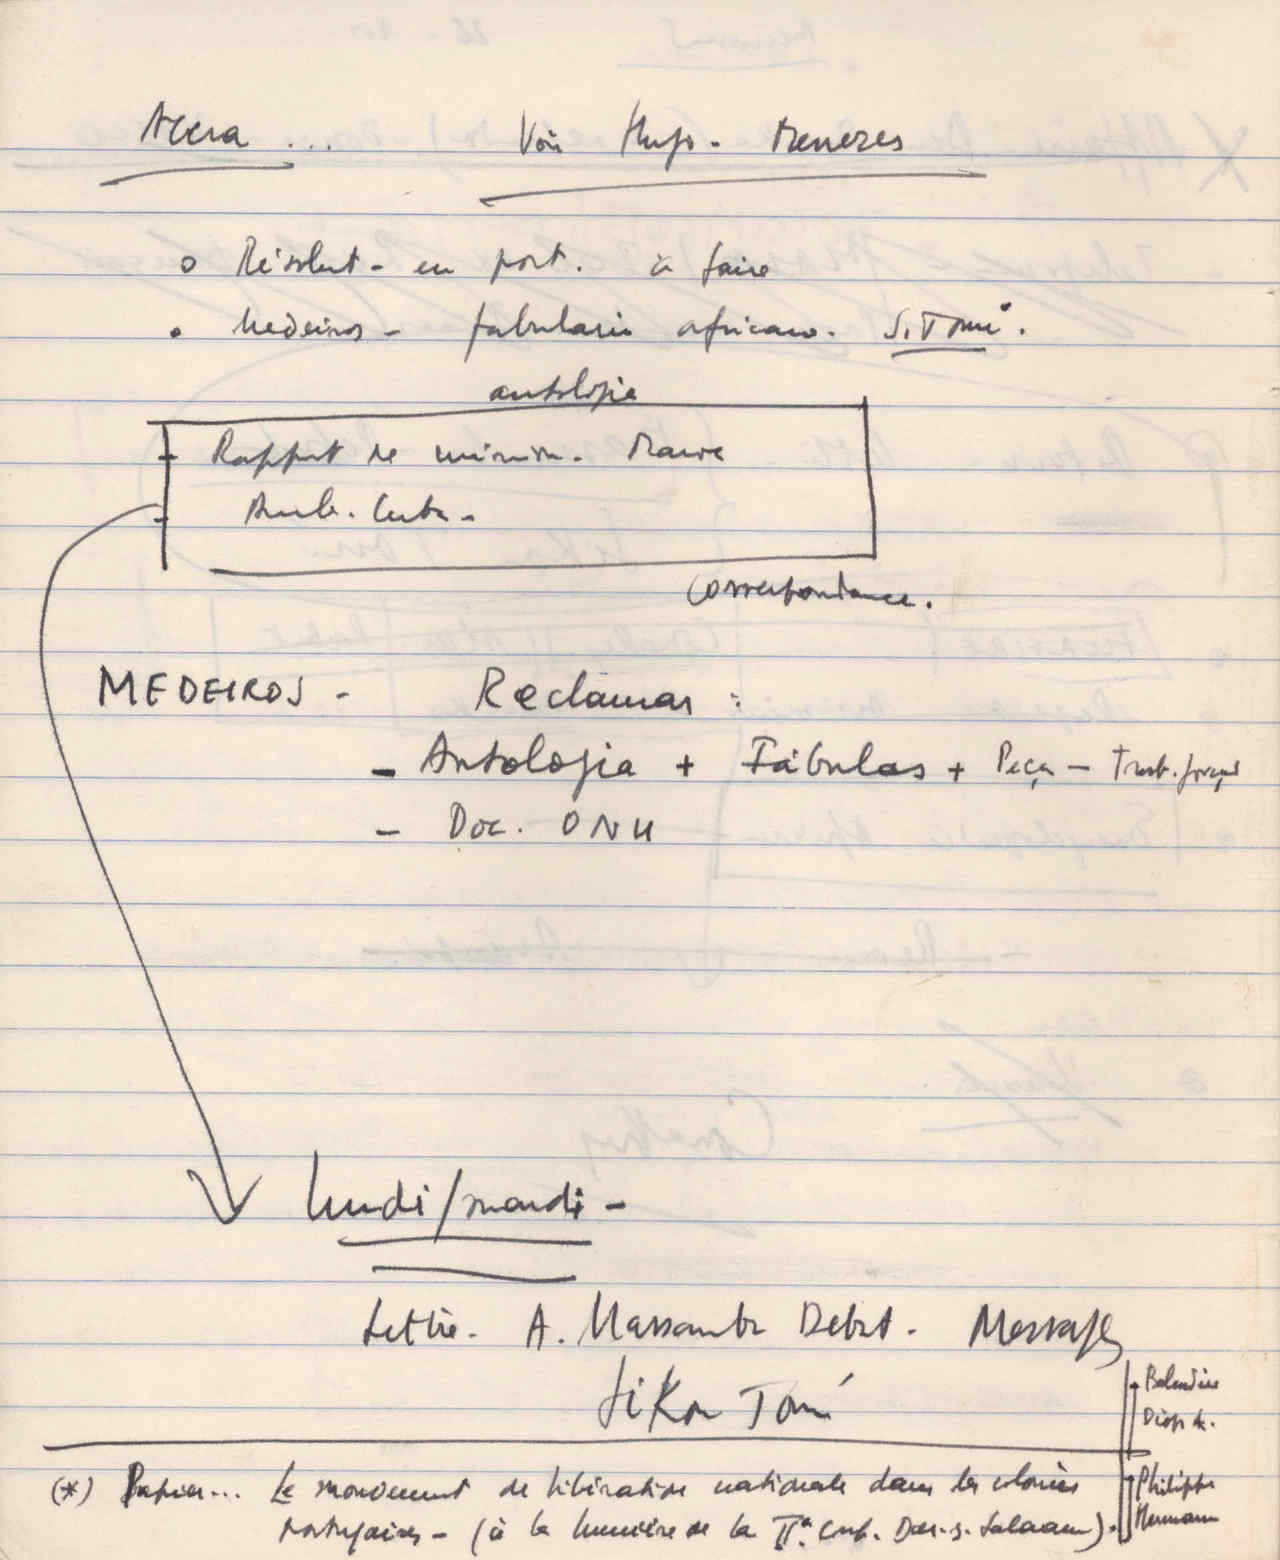 Accra ... Voir Hugo - Menezes
o Résolut - en port. à faire
o Medeiros - fabulario africano. S. Tomé.
antologia
- Rapport de mission. Maroc
- Amb. Cuba -
Correspondance.
MEDEIROS - Reclamar :
- Antologia + Fábulas + Peça - Trab. forçado
- Doc. ONU
lundi/mardi -
Lettre - A. Massamba Debat - Message
Sikou Touré
Balandier
Diop A.
(*) Papier... Le mouvement de libération nationale dans les colonies
portugaises - (à la lumière de la IIª. Conf. Dar-s-Salaam).
Philippe
Hermann